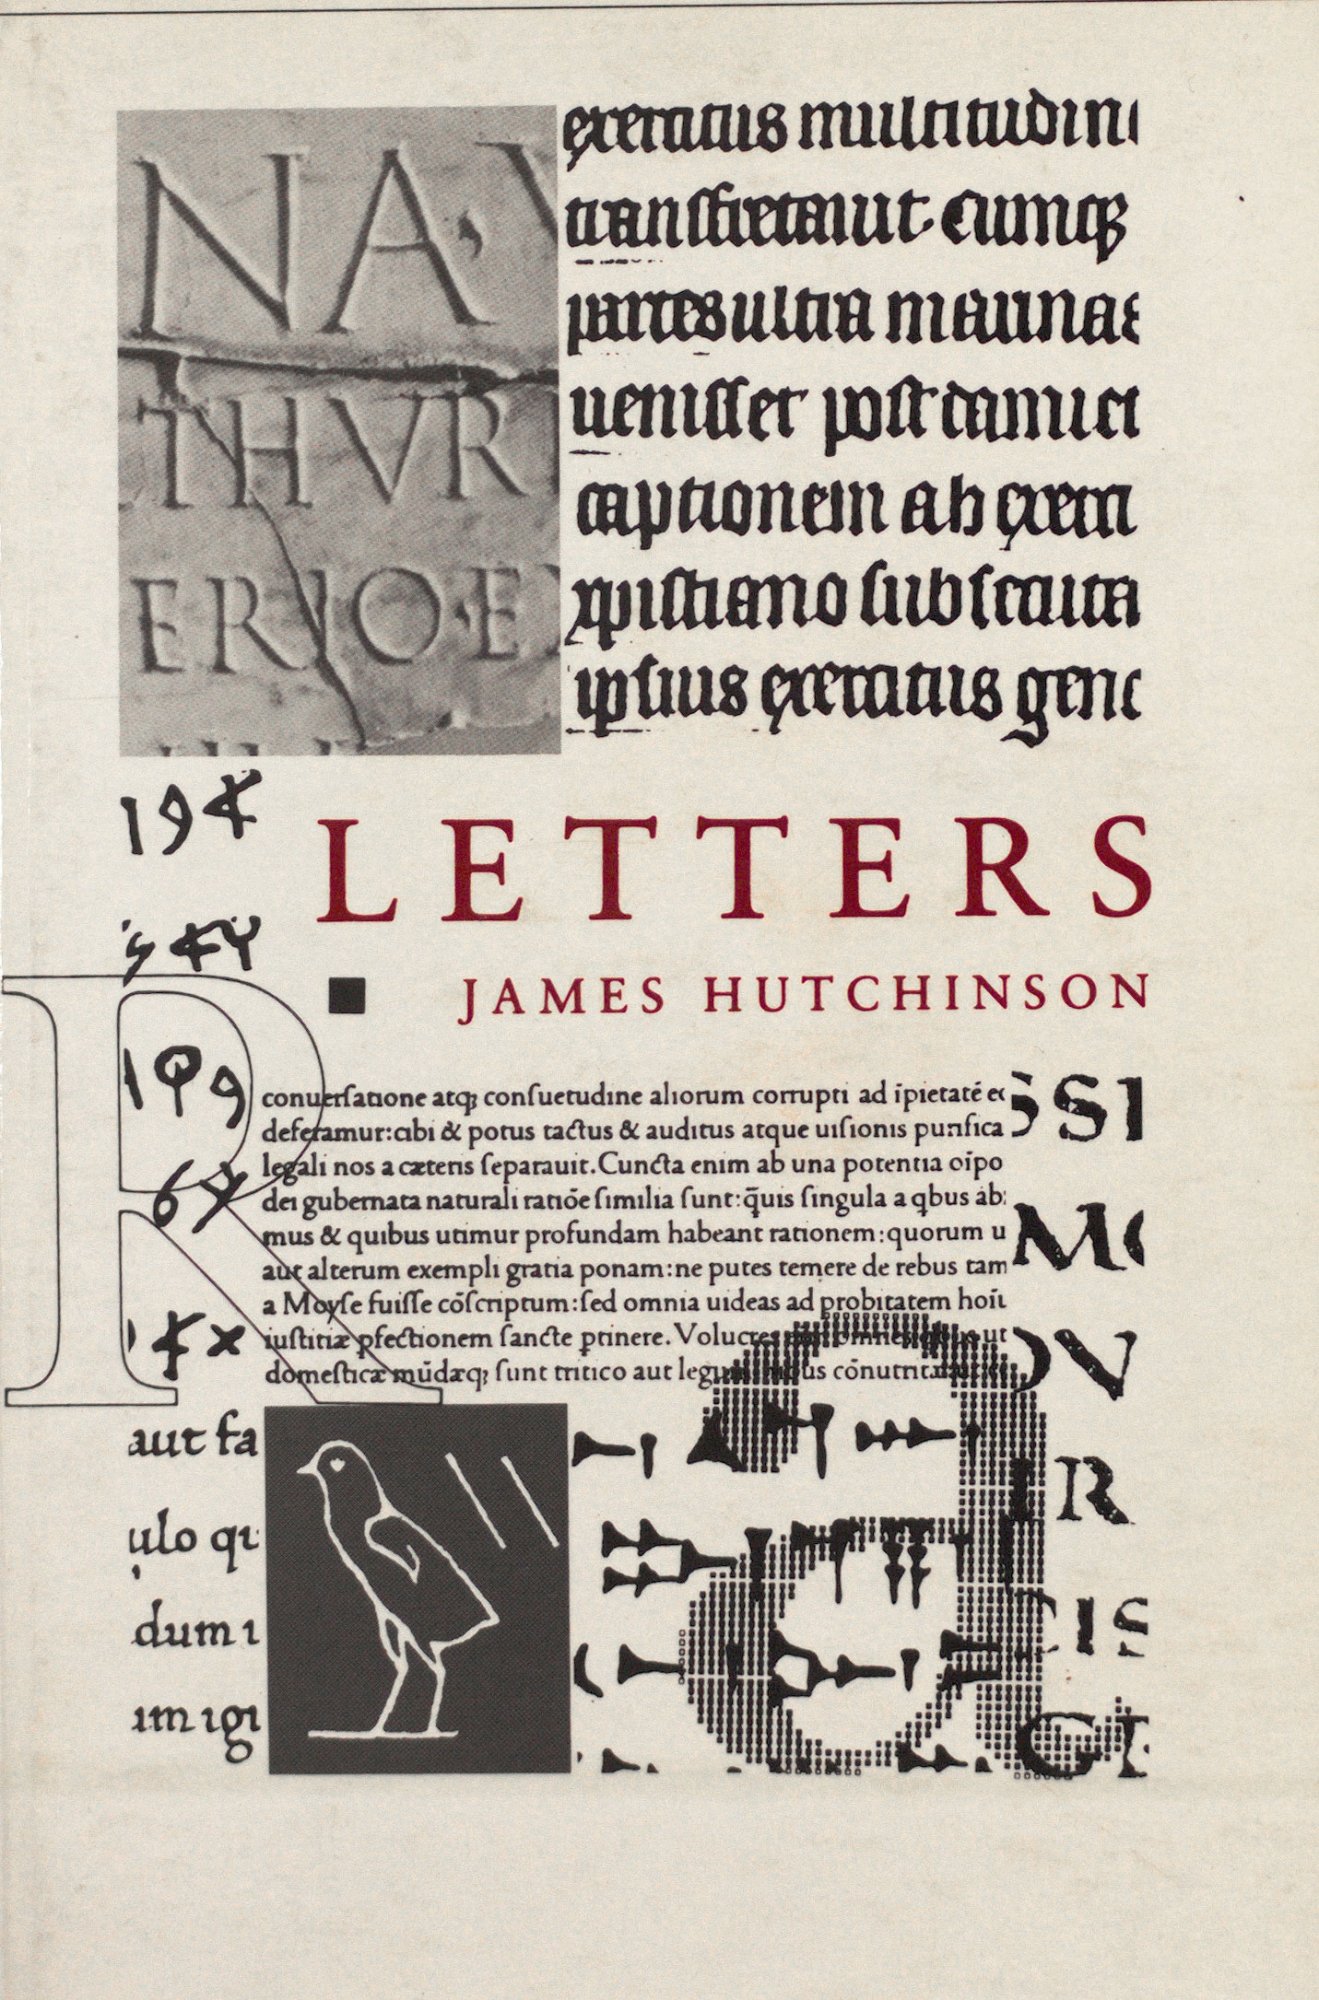 NA·V
THVR
ERIO·E
exercitus multitudini
transfretauit cumqꝫ
partes ultra marinas
uenisset post damiet
captionem ab exerci
xpistiano subsecuta
ipsius exercitus gene
LETTERS
■ JAMES HUTCHINSON
conuerſatione atqꝫ conſuetudine aliorum corrupti ad īpietatē
deferamur:cibi & potus tactus & auditus atque uiſionis purifica
legali nos a cæteris ſeparauit.Cuncta enim ab una potentia oīpo
dei gubernata naturali ratiōe ſimilia ſunt:q̄uis ſingula a qbus ab
mus & quibus utimur profundam habeant rationem:quorum u
aut alterum exempli gratia ponam:ne putes temere de rebus tam
a Moyſe fuiſſe cōſcriptum:ſed omnia uideas ad probitatem hoīu
iuſtitiæ pfectionem ſancte ptinere. Volucres omnes ut
domeſticæ mūdæqꝫ ſunt tritico aut cōnutrit
SSI
MO
OV
IR
CIS
GE
R
a
aut fa
ulo qu
dum i
im igi